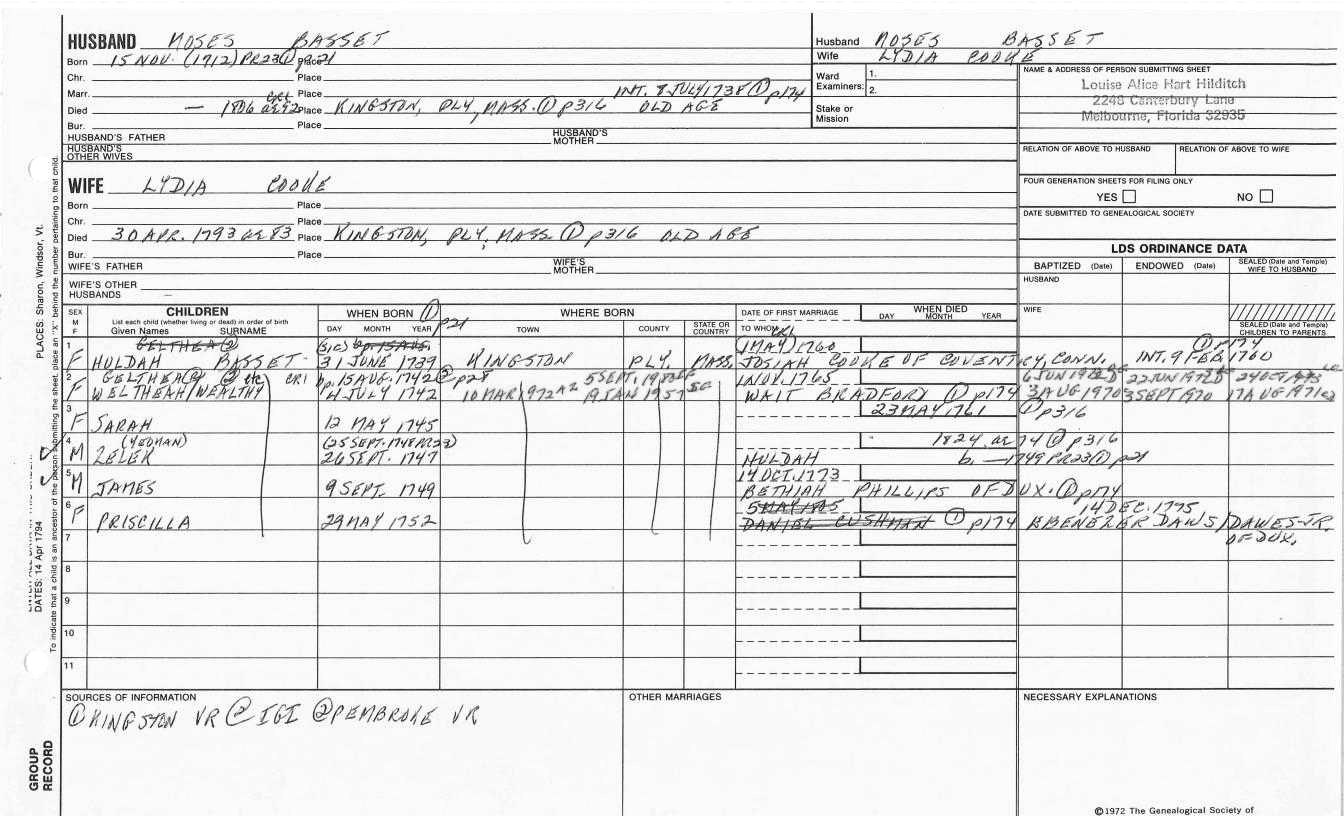 HUSBAND MOSES BASSET
Born 15 NOV. (1712) PR23① p21 Place
Chr. Place
Marr. Place INT. 8 JULY 1738 ① p174
Died — 1806 ae 92 CR1 Place KINGSTON, PLY, MASS. ① p316 OLD AGE
Bur. Place
HUSBAND'S FATHER HUSBAND'S MOTHER
HUSBAND'S OTHER WIVES
WIFE LYDIA COOKE
Born Place
Chr. Place
Died 30 APR. 1793 ae 83 Place KINGSTON, PLY, MASS. ① p316 OLD AGE
Bur. Place
WIFE'S FATHER WIFE'S MOTHER
WIFE'S OTHER HUSBANDS
Husband MOSES BASSET
Wife LYDIA COOKE
Ward Examiners: 1.
2.
Stake or Mission
NAME & ADDRESS OF PERSON SUBMITTING SHEET
Louise Alice Hart Hilditch
2248 Canterbury Lane
Melbourne, Florida 32935
RELATION OF ABOVE TO HUSBAND RELATION OF ABOVE TO WIFE
FOUR GENERATION SHEETS FOR FILING ONLY
YES NO
DATE SUBMITTED TO GENEALOGICAL SOCIETY
LDS ORDINANCE DATA
BAPTIZED (Date) ENDOWED (Date) SEALED (Date and Temple) WIFE TO HUSBAND
HUSBAND
WIFE
SEALED (Date and Temple) CHILDREN TO PARENTS
SEX M F
CHILDREN
List each child (whether living or dead) in order of birth
Given Names SURNAME
WHEN BORN ① p21
DAY MONTH YEAR
WHERE BORN
TOWN COUNTY STATE OR COUNTRY
DATE OF FIRST MARRIAGE
TO WHOM
WHEN DIED
DAY MONTH YEAR
1 GELTHEA ② (SIC) bp. 15 AUG. 1 MAY 1760 CR1 ① p174
F HULDAH BASSET 31 JUNE 1739 KINGSTON PLY, MASS. JOSIAH COOKE OF COVENTRY, CONN. INT. 9 FEB 1760
2 GELTHEA ② etc CR1 bp. 15 AUG. 1742 ② p28 1 NOV. 1765 22 JUN 1972
F WELTHEAH/WEALTHY 4 JULY 1742 10 MAR 1972 AZ 9 JAN 1957 WAIT BRADFORD ① p174 3 AUG 1970 3 SEPT 1970 17 AUG 1971
3 23 MAY 1761 ① p316
F SARAH 12 MAY 1745
4 (YEOMAN) (25 SEPT. 1748 PR23) 1824, ae 74 ① p316
M LELEK 26 SEPT. 1747 HULDAH b. — 1749 PR23 ① p21
5 14 OCT. 1773
M JAMES 9 SEPT. 1749 BETHIAH PHILLIPS OF DUX. ① p174
6 5 MAY 1785 14 DEC. 1775
F PRISCILLA 29 MAY 1752 DANIEL CUSHMAN ① p174 EBENEZER DAWS/DAWES JR. OF DUX.
7
8
9
10
11
SOURCES OF INFORMATION
① KINGSTON VR ② IGI ② PEMBROKE VR
OTHER MARRIAGES
NECESSARY EXPLANATIONS
©1972 The Genealogical Society of
PLACES: Sharon, Windsor, Vt.
DATES: 14 Apr 1794
To indicate that a child is an ancestor of the person submitting the sheet, place an "X" behind the number pertaining to that child.
GROUP RECORD